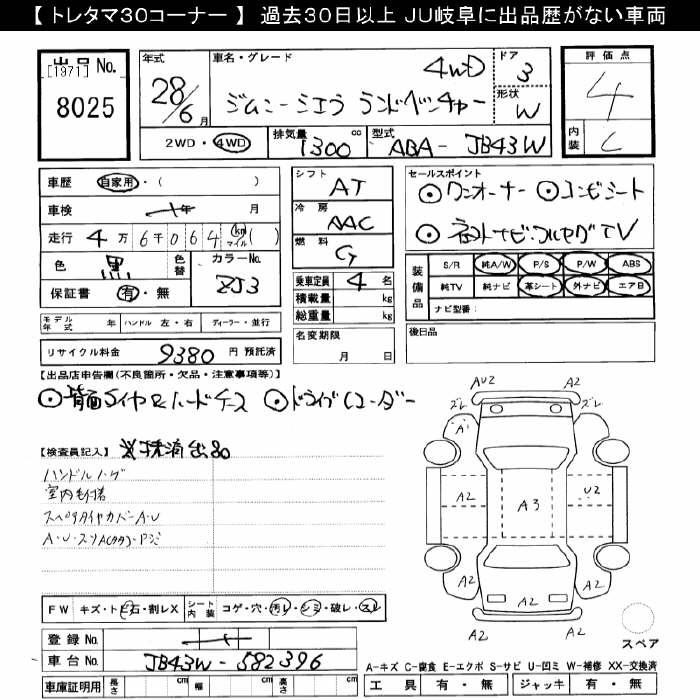 【 トレタマ30コーナー 】 過去30日以上 JU岐阜に出品歴がない車両
出品No. [1971]
8025
年式 28/6月
車名・グレード 4WD
ジムニーシエラ ランドベンチャー
ドア 3
形状 W
評価点 4
内装 C
2WD・4WD 排気量 1300 cc 型式 ABA-JB43W
車歴 自家用・( )
車検 年 月
走行 4万6千064 km マイル ( )
色 黒 色替 カラーNo. ZJ3
保証書 有・無
モデル年式 年 ハンドル 左・右 ディーラー・並行
リサイクル料金 9380 円 預託済
シフト AT
冷房 AAC
燃料 G
乗車定員 4 名
積載量 kg
総重量 kg
名変期限 月 日
セールスポイント
⊙ワンオーナー ⊙コンビシート
装備品 S/R 純A/W P/S P/W ABS
純TV 純ナビ 革シート 外ナビ エアB
ナビ型番:
後日品
【出品店申告欄(不良箇所・欠品・注意事項等)】
⊙背面タイヤ&ハードケース ⊙ドライブレコーダー
【検査員記入】
室内
スペアタイヤカバーA・U
FW キズ・トビ石・割レX シート内装 コゲ・穴・汚レ・シミ・破レ・スレ
登録No.
車台No. JB43W-582396
車庫証明用 長さ cm 幅 cm 高さ cm
AU2 A2
ズレ ズレ
A1 A2
A2 A3 U2
A2 A2
A2 A2
A2 A2
スペア
A-キズ C-腐食 E-エクボ S-サビ U-凹ミ W-補修 XX-交換済
工具 有・無 ジャッキ 有・無